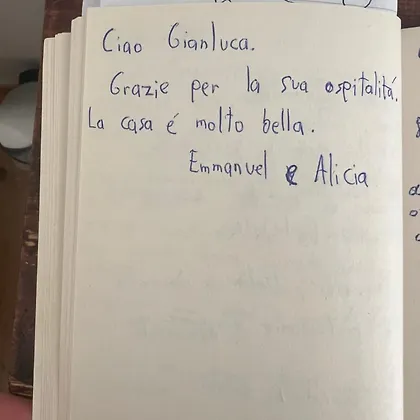 Ciao Gianluca.
Grazie per la sua ospitalitá.
La casa é molto bella.
Emmanuel e Alicia